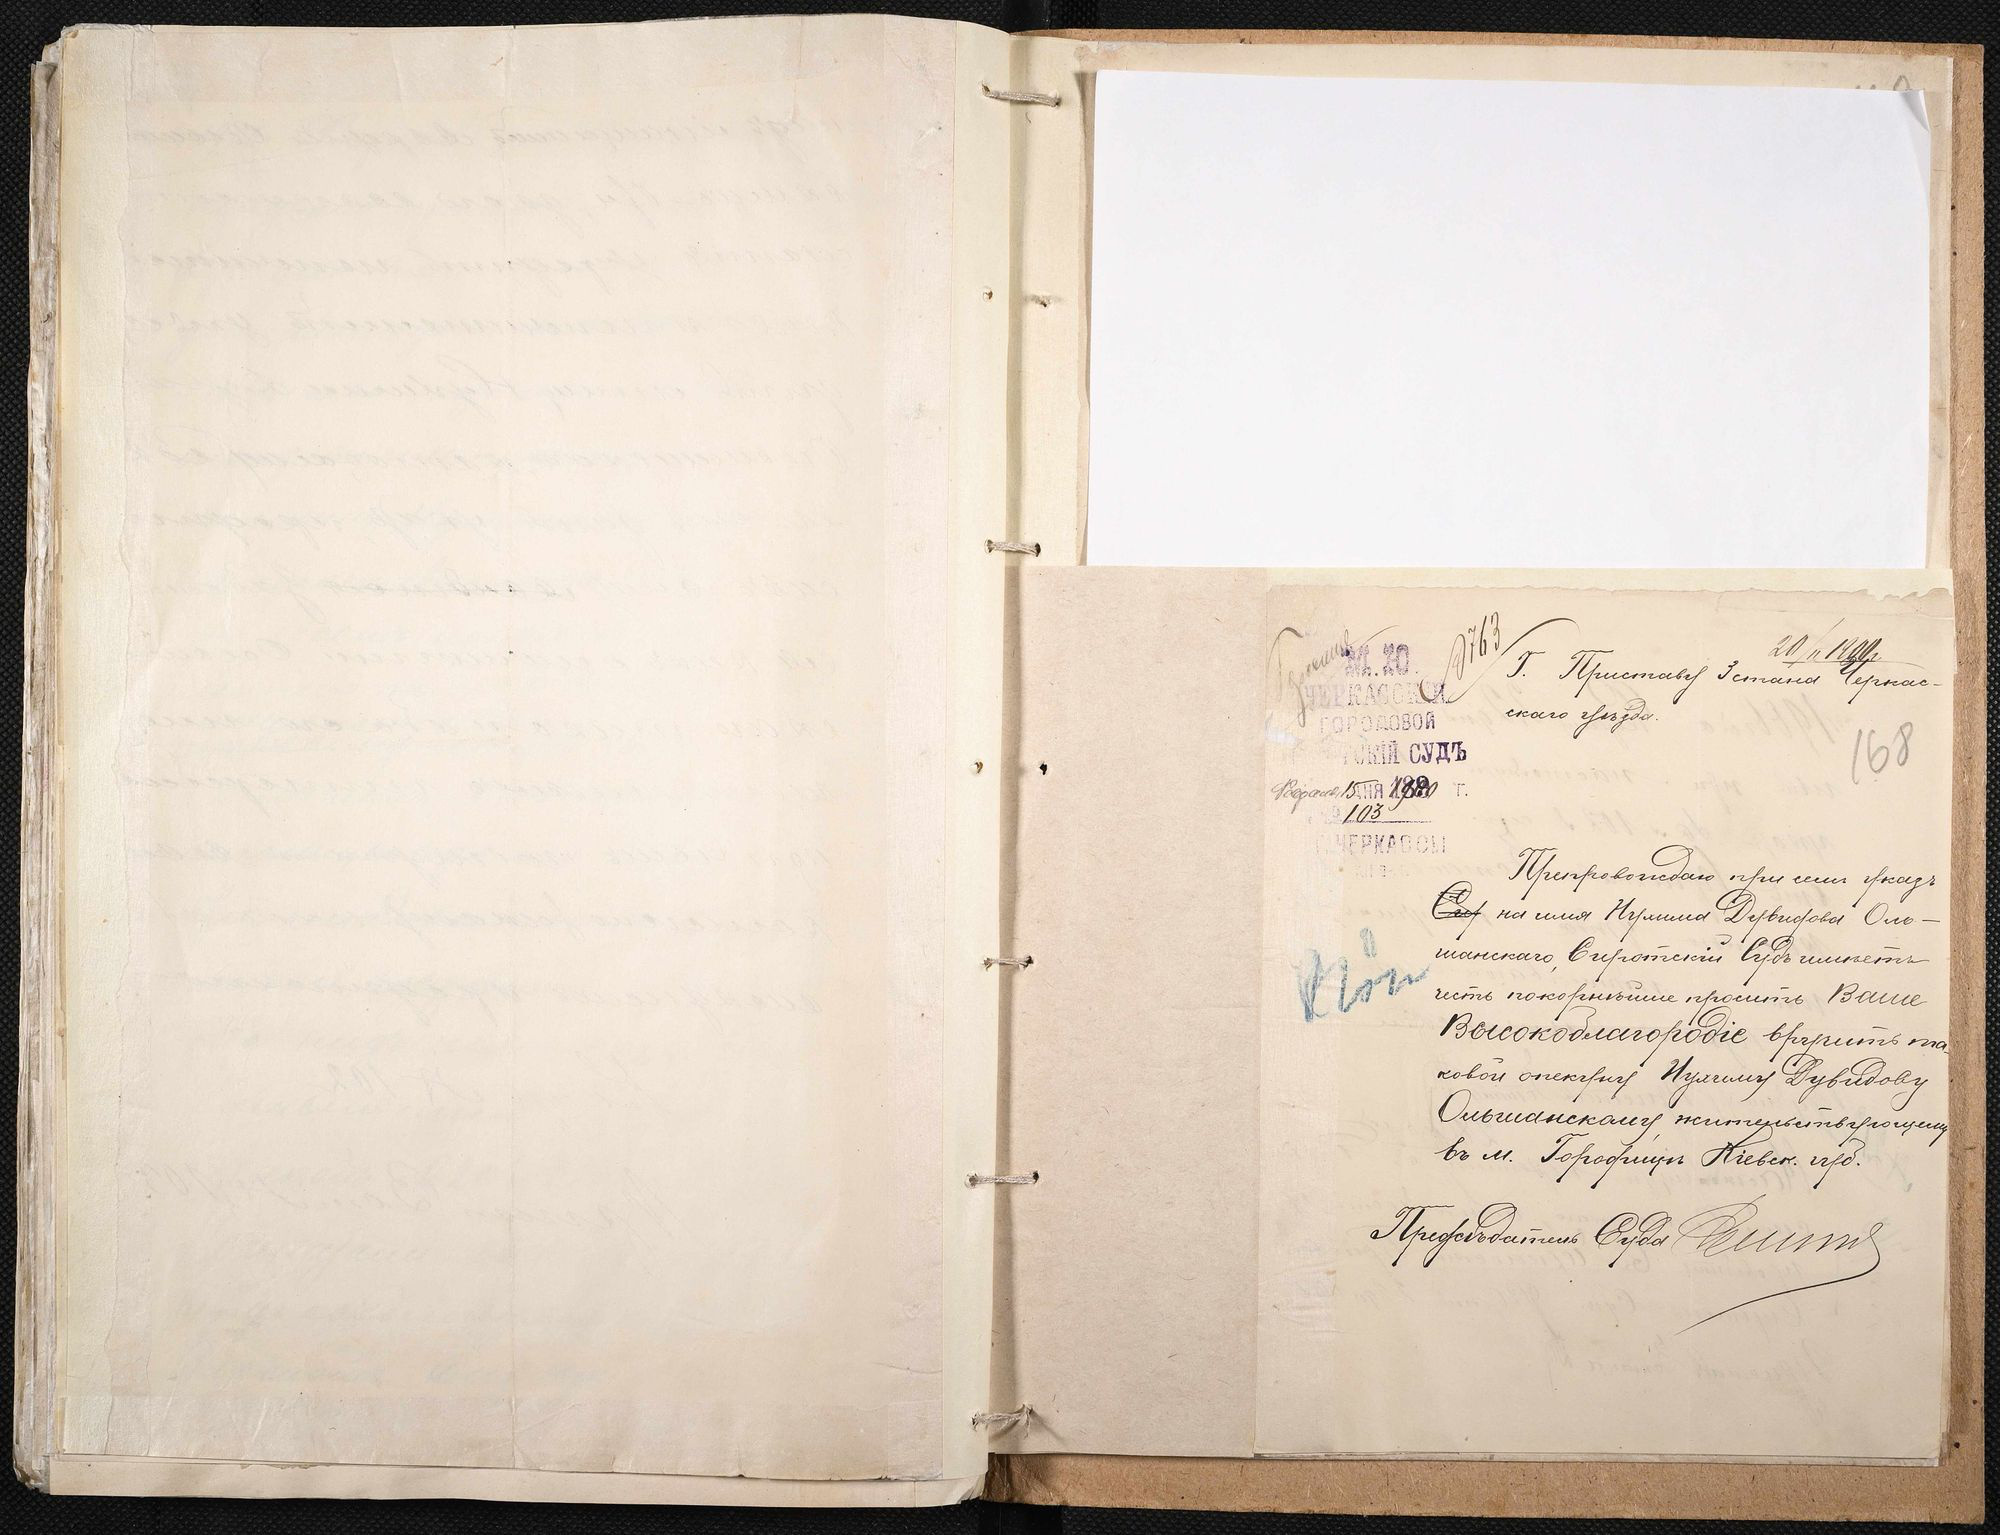 763
20/II 1900 г
М. Ю.
ЧЕРКАССКІЙ
ГОРОДОВОЙ
СКІЙ СУДЪ
Февраля 15 ДНЯ 1900 Г.
103
Г. ЧЕРКАССЫ
Г. Приставу 3 стана Черкас-
скаго уѣзда.
168
Препровождаю при семъ указъ
на имя Нухима Дувидова Оль-
шанскаго, Сиротскій Судъ имѣетъ
честь покорнѣйше просить Ваше
Высокоблагородіе вручить та-
ковой опекуну Нухиму Дувидову
Ольшанскому, жительствующему
въ м. Городищѣ Кіевск. губ.
Предсѣдатель Суда